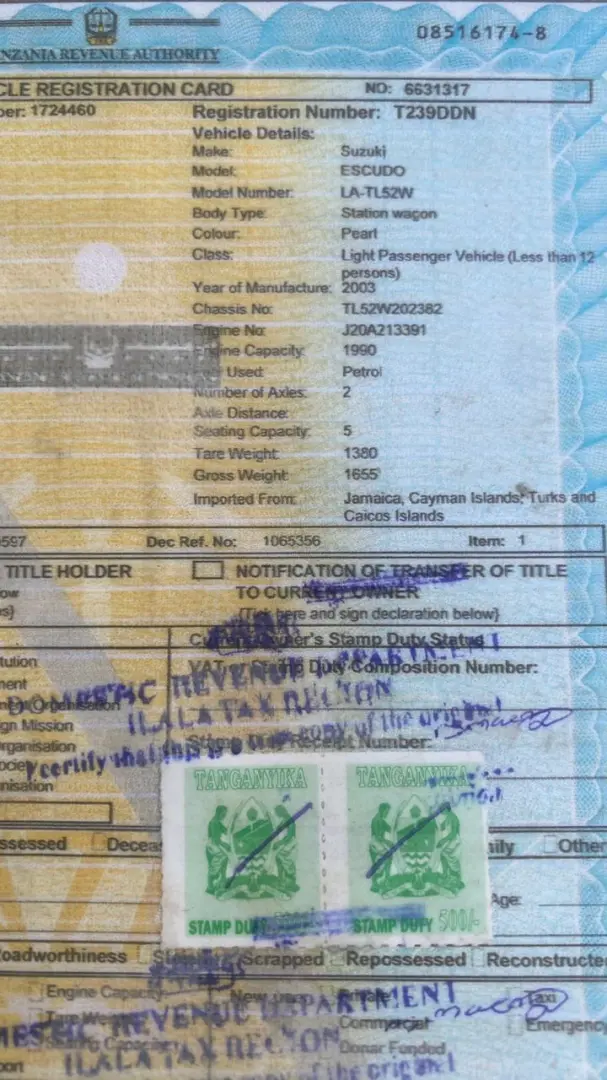 08516174-8
NZANIA REVENUE AUTHORITY
CLE REGISTRATION CARD NO: 6631317
ber: 1724460 Registration Number: T239DDN
Vehicle Details:
Make: Suzuki
Model: ESCUDO
Model Number: LA-TL52W
Body Type: Station wagon
Colour: Pearl
Class: Light Passenger Vehicle (Less than 12
persons)
Year of Manufacture: 2003
Chassis No: TL52W202382
Engine No: J20A213391
Engine Capacity: 1990
Used: Petrol
Number of Axles: 2
Axle Distance:
Seating Capacity: 5
Tare Weight: 1380
Gross Weight: 1655
Imported From: Jamaica, Cayman Islands, Turks and
Caicos Islands
597 Dec Ref. No: 1065356 Item: 1
TITLE HOLDER NOTIFICATION OF TRANSFER OF TITLE
TO CURRENT OWNER
(Tick here and sign declaration below)
Current Owner's Stamp Duty Status
tution VAT Stamp Duty Composition Number:
ment DOMESTIC REVENUE DEPARTMENT
Organisation ILALA TAX REGION
gn Mission
rganisation I certify that this is a true copy of the original
Stamp Duty Receipt Number:
nisation
TANGANYIKA TANGANYIKA
STAMP DUTY STAMP DUTY 500/-
ssessed Deceas ily Other
Age:
oadworthiness Scrapped Repossessed Reconstructe
Engine Capacity Taxi
MESTIC REVENUE DEPARTMENT
Tare We Commercial Emergenc
Seating Capacity ILALA TAX REGION Donor Funded
port copy of the original